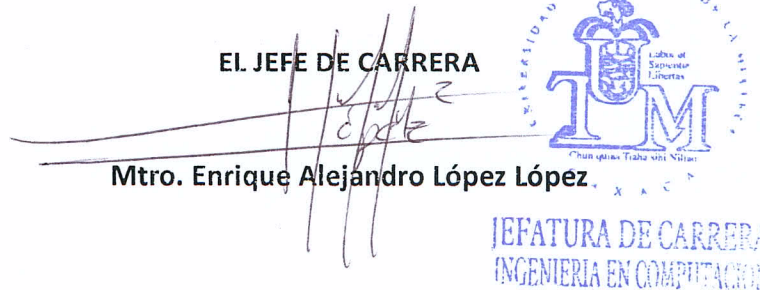 EL JEFE DE CARRERA
Mtro. Enrique Alejandro López López
Labor et
Sapientia
Libertas
UTM
JEFATURA DE CARRERA
INGENIERIA EN COMPUTACION